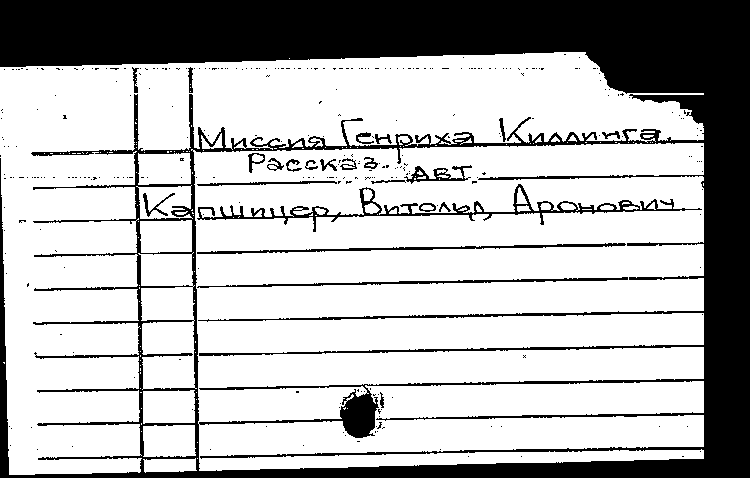 Миссия Генриха Киллинга.
Рассказ.
Авт.
Капшицер, Витольд Аронович.